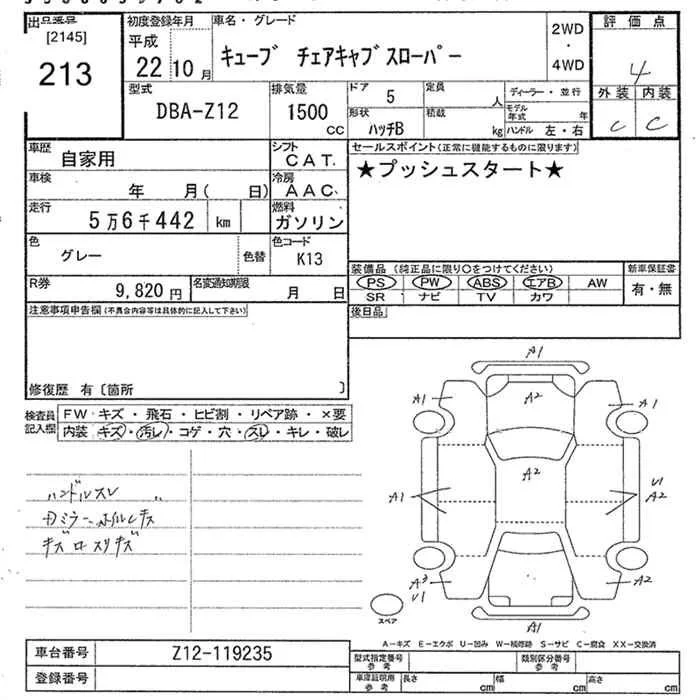 出品番号
[2145]
213
初度登録年月
平成
22 10 月
車名・グレード
キューブ チェアキャブスローパー
2WD
・
4WD
評価点
4
外装 内装
C C
型式
DBA-Z12
排気量
1500
cc
ドア 5
定員 人
ディーラー・並行
形状 ハッチB
積載 kg
モデル年式 年
ハンドル 左・右
車歴 自家用
シフト CAT.
セールスポイント(正常に機能するものに限ります)
★プッシュスタート★
車検 年 月( 日)
冷房 AAC
走行 5万6千442 km
燃料 ガソリン
色 グレー
色替
色コード K13
R券 9,820 円
名変通知期限 月 日
装備品 (純正品に限り○をつけてください)
PS PW ABS エアB AW
SR ナビ TV カワ
新車保証書
有・無
注意事項申告欄(不具合内容等は具体的に記入して下さい)
後日品
修復歴 有〔箇所 〕
検査員記入欄
FW キズ・飛石・ヒビ割・リペア跡・×要
内装 キズ・汚レ・コゲ・穴・スレ・キレ・破レ
ハンドルスレ
キズ
A1
A2
A1
A1
A2
A1
U1
A2
A3
U1
A2
A1
スペア
A-キズ E-エクボ U-凹み W-補修跡 S-サビ C-腐食 XX-交換済
車台番号 Z12-119235
登録番号
型式指定番号 参考
類別区分番号 参考
車庫証明用 参考
長さ cm
幅 cm
高さ cm